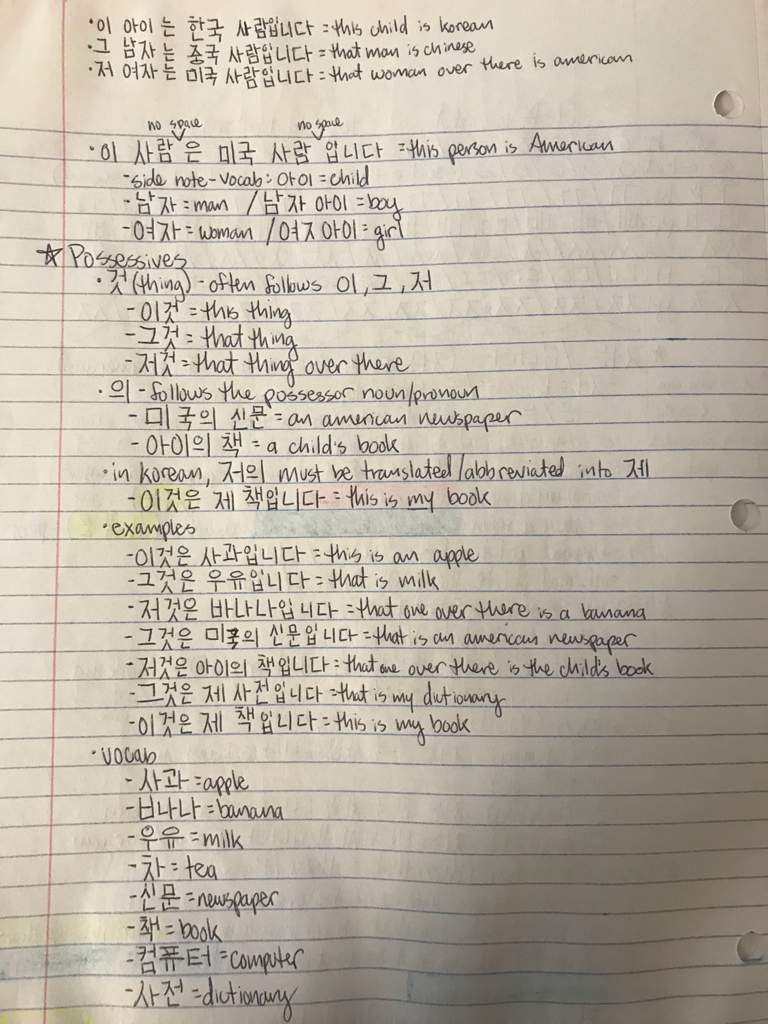 ·이 아이는 한국 사람입니다 = this child is korean
·그 남자는 중국 사람입니다 = that man is chinese
·저 여자는 미국 사람입니다 = that woman over there is american
no space no space
·이 사람은 미국 사람 입니다 = this person is American
-side note-vocab: 아이 = child
-남자 = man / 남자 아이 = boy
-여자 = woman / 여자 아이 = girl
☆ Possessives
·것 (thing) - often follows 이, 그, 저
-이것 = this thing
-그것 = that thing
-저것 = that thing over there
·의 - follows the possessor noun/pronoun
- 미국의 신문 = an american newspaper
- 아이의 책 = a child's book
·in korean, 저의 must be translated/abbreviated into 제
-이것은 제 책입니다 = this is my book
·examples
-이것은 사과입니다 = this is an apple
-그것은 우유입니다 = that is milk
-저것은 바나나입니다 = that one over there is a banana
-그것은 미국의 신문입니다 = that is an american newspaper
-저것은 아이의 책입니다 = that one over there is the child's book
-그것은 제 사전입니다 = that is my dictionary
-이것은 제 책입니다 = this is my book
·vocab
-사과 = apple
-바나나 = banana
-우유 = milk
-차 = tea
-신문 = newspaper
-책 = book
-컴퓨터 = computer
-사전 = dictionary